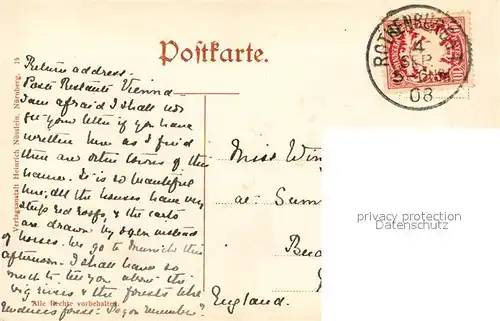 Postkarte.
ROTHENBURG O/T
4
SEP
08
Return address:
Poste Restante Vienna
I am afraid I shall not
get your letter if you have
written here as I find
there are other towns of this
name. It is so beautiful
here; all the houses have very
steep red roofs, & the carts
are drawn by oxen instead
of horses. We go to Munich this
afternoon. I shall have so
much to tell you about the
big rivers & the forests like
forest. Do you remember?
Miss Win
at Sum
England.
privacy protection
Datenschutz
Verlagsanstalt Heinrich Nösslein, Nürnberg. 15
Alle Rechte vorbehalten.